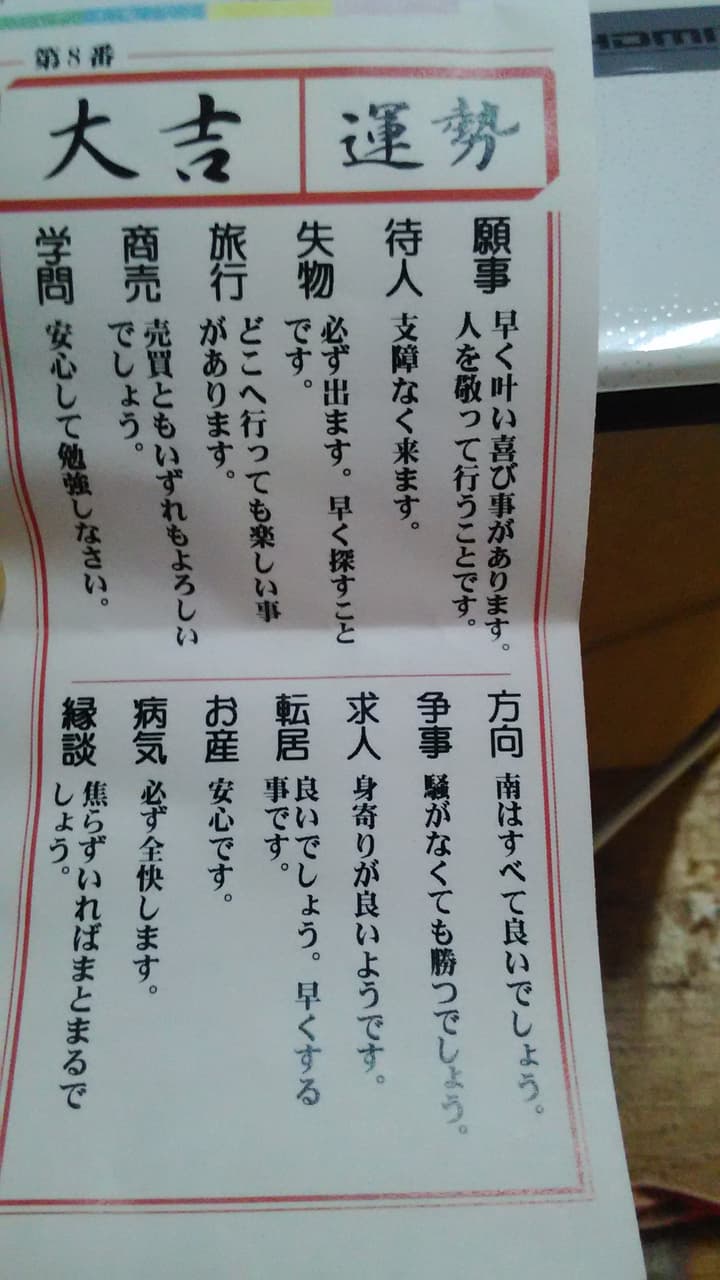 第8番
運勢
大吉
願事
早く叶い喜び事があります。
人を敬って行うことです。
待人
支障なく来ます。
失物
必ず出ます。早く探すこと
です。
旅行
どこへ行っても楽しい事
があります。
商売
売買ともいずれもよろしい
でしょう。
学問
安心して勉強しなさい。
方向
南はすべて良いでしょう。
争事
騒がなくても勝つでしょう。
求人
身寄りが良いようです。
転居
良いでしょう。早くする
事です。
お産
安心です。
病気
必ず全快します。
縁談
焦らずいればまとまるで
しょう。
HDMI